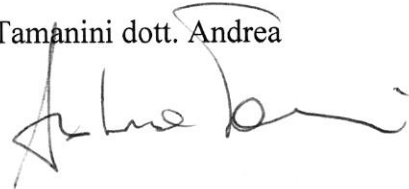 Tamanini dott. Andrea